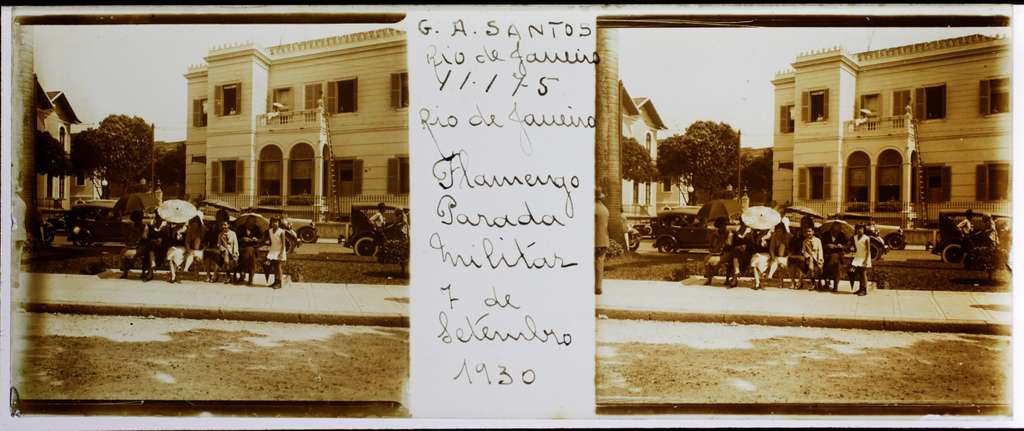 G. A. SANTOS
Rio de Janeiro
11.175
Rio de Janeiro
Flamengo
Parada
Militár
7 de
Setembro
1930